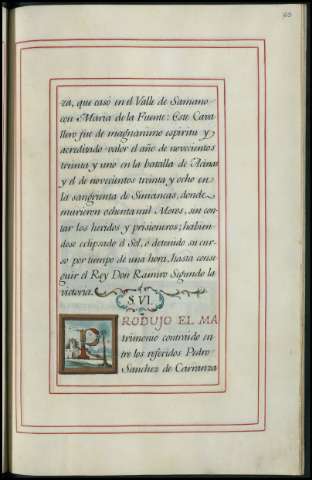 za, que casó en el Valle de Samano
con Maria de la Fuente: Este Cava
llero fue de magnanimo espiritu y
acredivado valor el año de novecientos
treinta y uno en la batalla de Azinas
y el de novecientos treinta y ocho en
la sangrienta de Simancas, donde
murieron ochenta mil Moros, sin con
tar los heridos y prisioneros; habien
dose eclipsado el Sol, o detenido su cur
so por tiempo de una hora, hasta conse
guir el Rey Don Ramiro Segundo la
victoria.
S. VI.
PRODUJO EL MA
trimonio contraido en
tre los referidos Pedro
Sanchez de Carranza